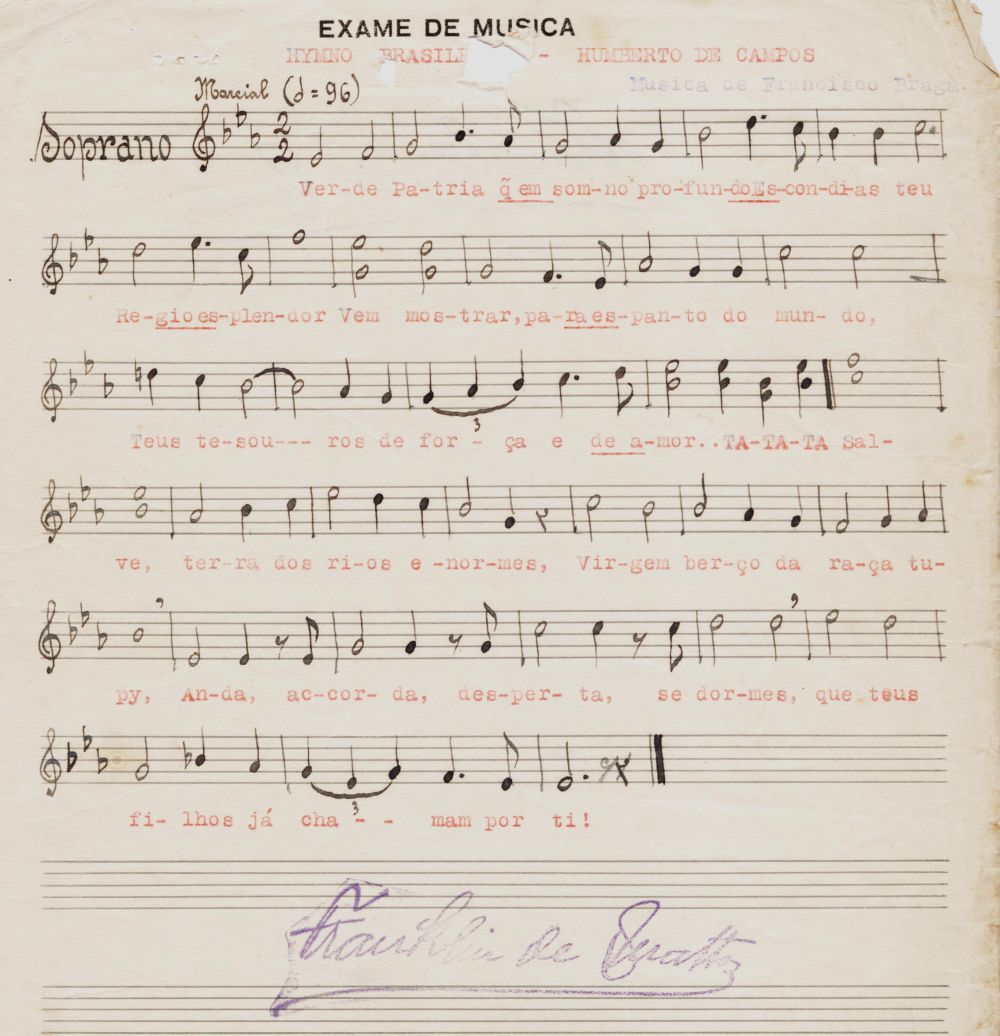 EXAME DE MUSICA
HYMNO BRASIL - HUMBERTO DE CAMPOS
Musica de Francisco Braga.
Marcial (d = 96)
Soprano
2
2
Ver-de Pa-tria q̃ em som-no pro-fun-doEs-con-di-as teu
Re-gioes-plen-dor Vem mos-trar,pa-raes-pan-to do mun- do,
3
Teus te-sou--- ros de for - ça e de a-mor..TA-TA-TA Sal-
ve, ter-ra dos ri-os e -nor-mes, Vir-gem ber-ço da ra-ça tu-
py, An-da, ac-cor- da, des-per- ta, se dor-mes, que teus
3
fi- lhos já cha - - mam por ti!
Franklin de